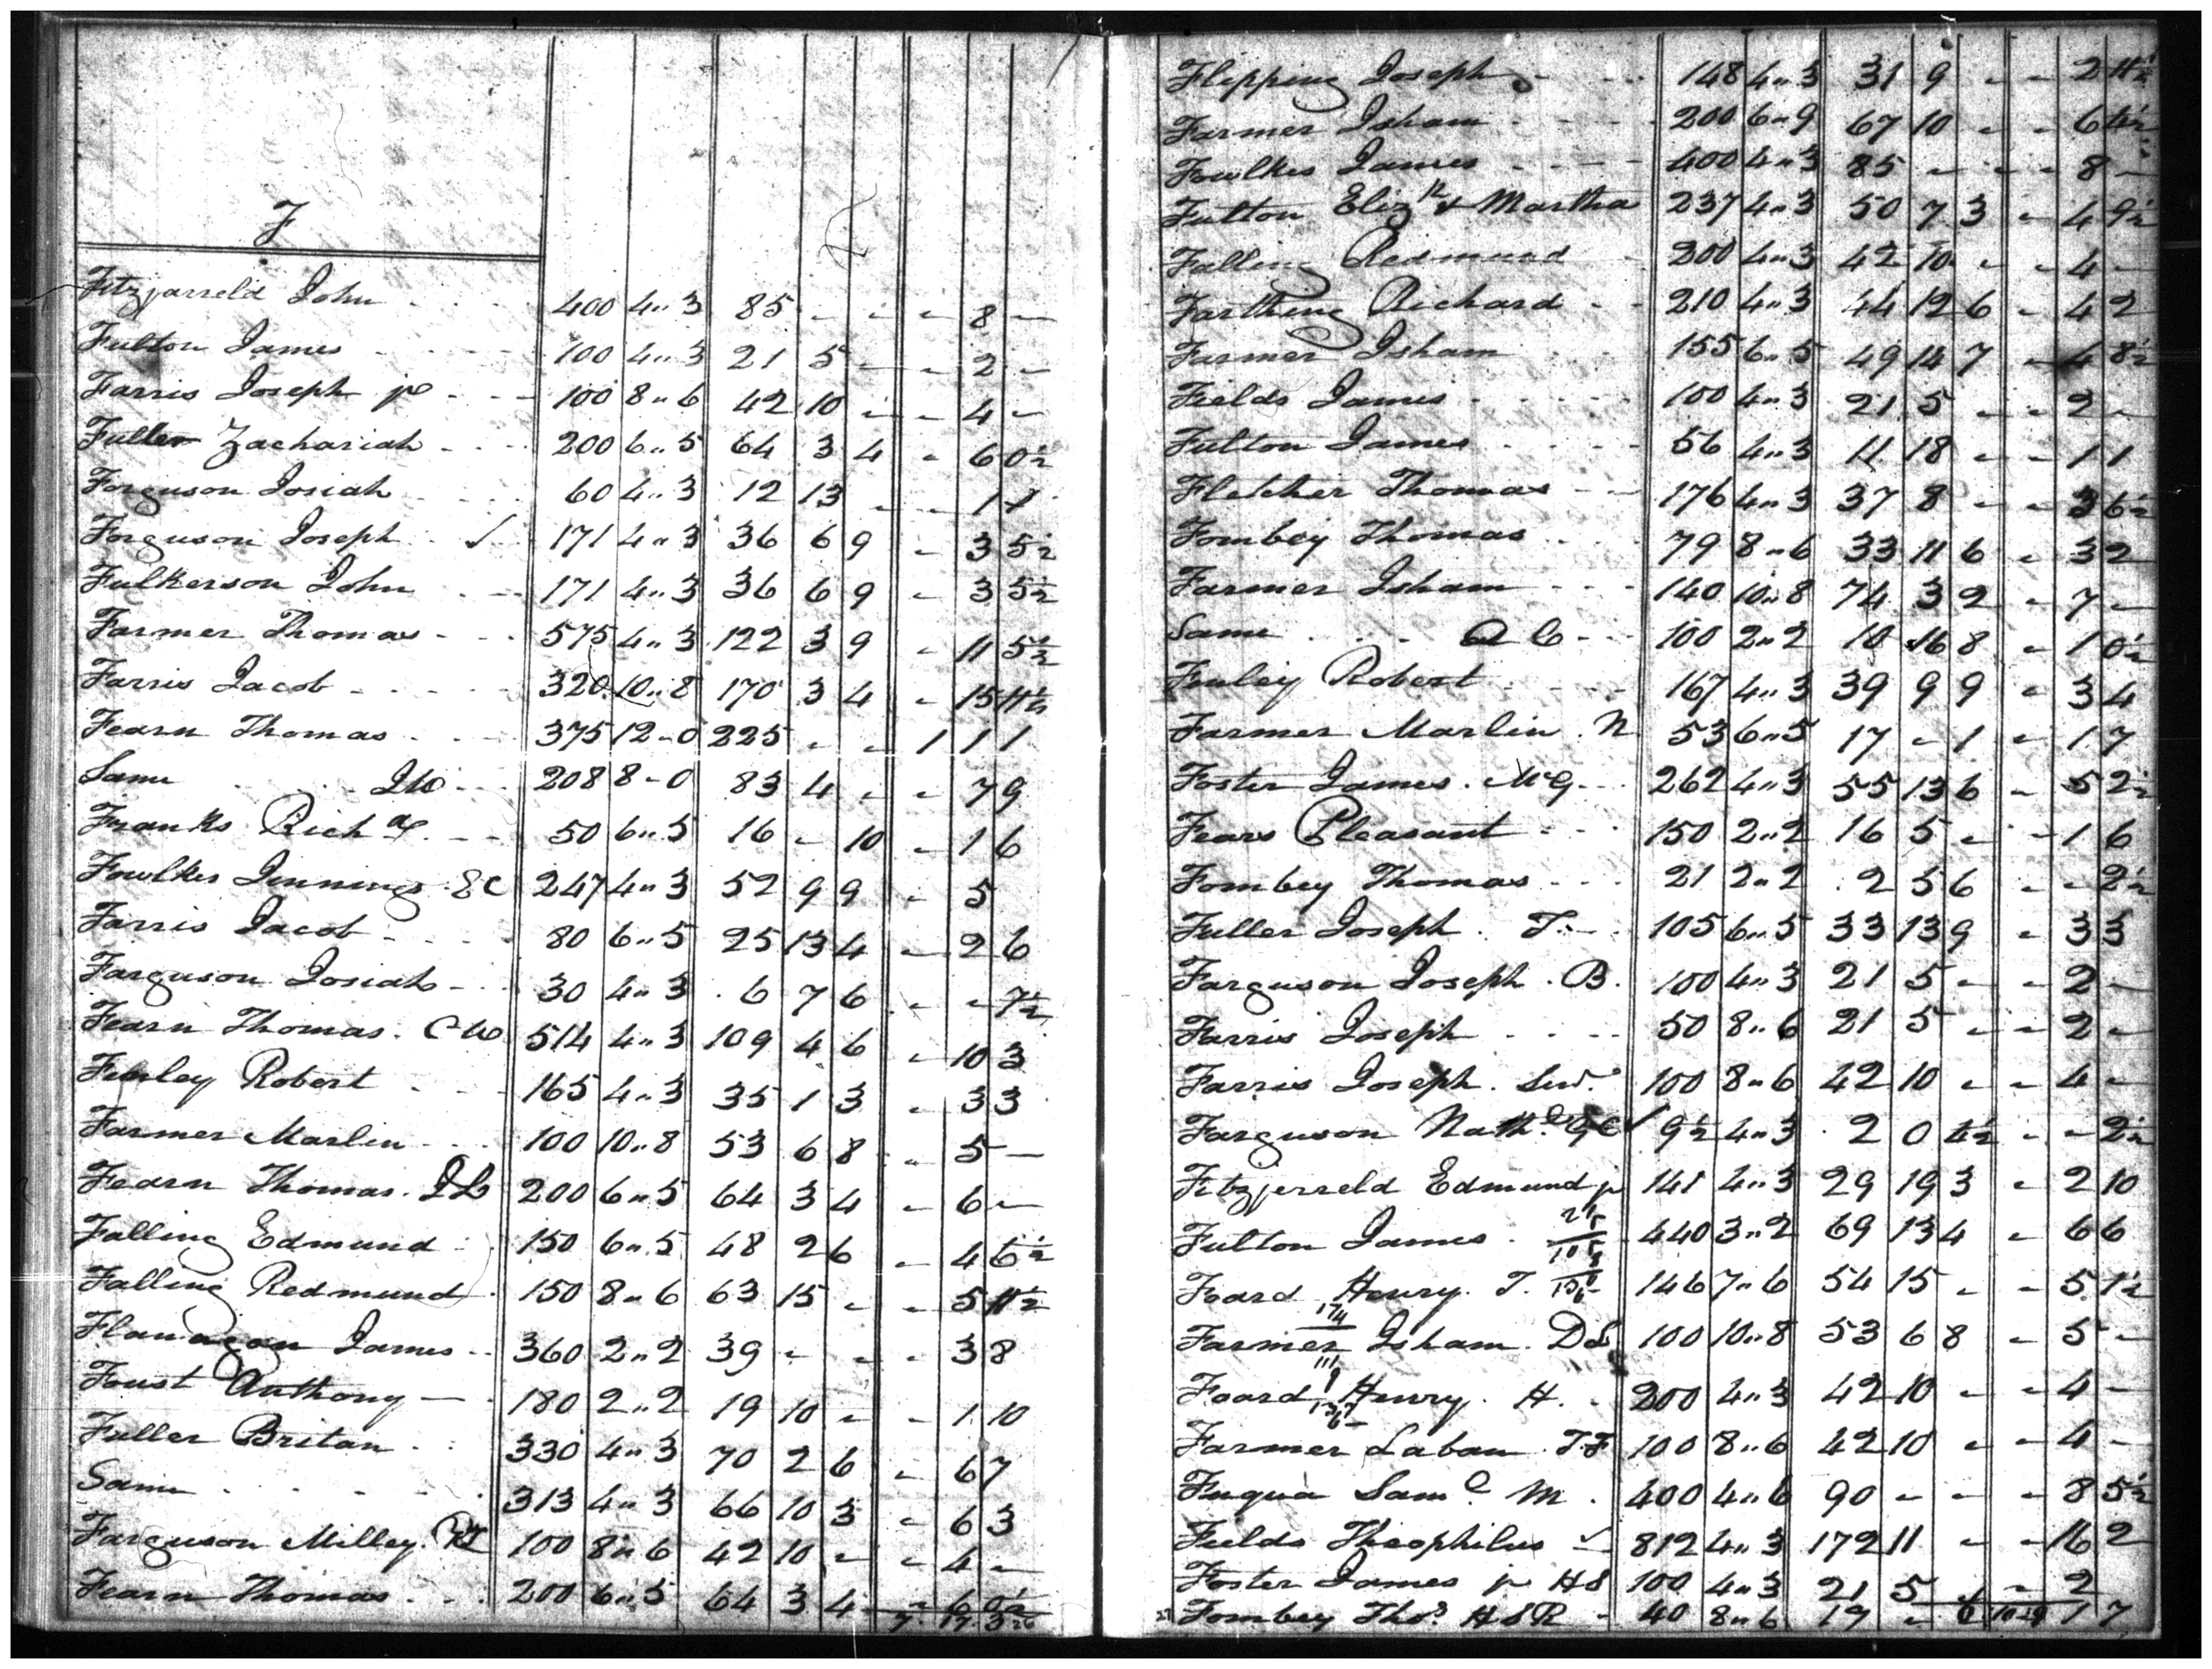 F
Fitzjarreld John 400 4"3 85 - - - 8 -
Fulton James 100 4"3 21 5 - - 2 -
Farris Joseph jr 100 8"6 42 10 - - 4 -
Fuller Zachariah 200 6"5 64 3 4 - 6 0½
Forguson Josiah 60 4"3 12 13 - - 1
Forguson Joseph ✓ 171 4"3 36 6 9 - 3 5½
Fulkerson John 171 4"3 36 6 9 - 3 5½
Farmer Thomas 575 4"3 122 3 9 - 11 5½
Farris Jacob 320 10"8 170 3 4 - 15 11½
Fearn Thomas 375 12-0 225 - - 1 1 1
Same 208 8-0 83 4 - - 7 9
Franks Richd 50 6"5 16 - 10 - 1 6
Fowlkes Jennings 247 4"3 52 9 9 - 5
Farris Jacob 80 6"5 25 13 4 - 2 6
Farguson Josiah 30 4"3 6 7 6 - - 7½
Fearn Thomas. CW 514 4"3 109 4 6 - 10 3
Finley Robert 165 4"3 35 1 3 - 3 3
Farmer Marlin 100 10"8 53 6 8 - 5 -
Fearn Thomas. 200 6"5 64 3 4 - 6 -
Falling Edmund 150 6"5 48 2 6 - 4 6½
Falling Redmund 150 8"6 63 15 - - 5 11½
Flanagan James 360 2"2 39 - - - 3 8
Foust Anthony 180 2"2 19 10 - - 1 10
Fuller Britan 330 4"3 70 2 6 - 6 7
Same 313 4"3 66 10 3 - 6 3
Farguson Milley. 100 8"6 42 10 - - 4 -
Fearn Thomas 200 6"5 64 3 4 - 6 0½
7. 17. 3
Flipping Joseph 148 4"3 31 9 - - 2 11½
Farmer Isham 200 6"9 67 10 - - 6 4½
Fowlkes James 400 4"3 85 - - - 8 -
Fulton Elizth & Martha 237 4"3 50 7 3 - 4 9½
Falling Redmund 200 4"3 42 10 - - 4 -
Farthing Richard 210 4"3 44 12 6 - 4 2
Farmer Isham 155 6"5 49 14 7 - 4 8½
Fields James 100 4"3 21 5 - - 2 -
Fulton James 56 4"3 11 18 - - 1 1
Fletcher Thomas 176 4"3 37 8 - - 3 6½
Fombey Thomas 79 8"6 33 11 6 - 3 2
Farmer Isham 140 10"8 74 3 2 - 7 -
Same 100 2"2 10 16 8 - 1 0½
Finley Robert 167 4"3 39 9 9 - 3 4
Farmer Marlin. N 53 6"5 17 - 1 - 1 7
Foster James. McG 262 4"3 55 13 6 - 5 2½
Fears Pleasant 150 2"2 16 5 - - 1 6
Fombey Thomas 21 2"2 2 5 6 - - 2½
Fuller Joseph. T. 105 6"5 33 13 9 - 3 3
Farguson Joseph. B. 100 4"3 21 5 - - 2 -
Farris Joseph 50 8"6 21 5 - - 2 -
Farris Joseph. Senr. 100 8"6 42 10 - - 4 -
Farguson Nathl. ✓ 9½ 4"3 2 0 4½ - - 2½
Fitzjerreld Edmund jr 141 4"3 29 19 3 - 2 10
Fulton James. 440 3"2 69 13 4 - 6 6
Foard Henry. T. 146 7"6 54 15 - - 5 1½
Farmer Isham. DS 100 10"8 53 6 8 - 5 -
Foard Henry. H. 200 4"3 42 10 - - 4 -
Farmer Laban. T.F 100 8"6 42 10 - - 4 -
Fuqua Saml. M. 400 4"6 90 - - - 8 5½
Fields Theophilus 812 4"3 172 11 - - 16 2
Foster James jr HS 100 4"3 21 5 - - 2
Fombey Thos HSR 40 8"6 17 - 1 7